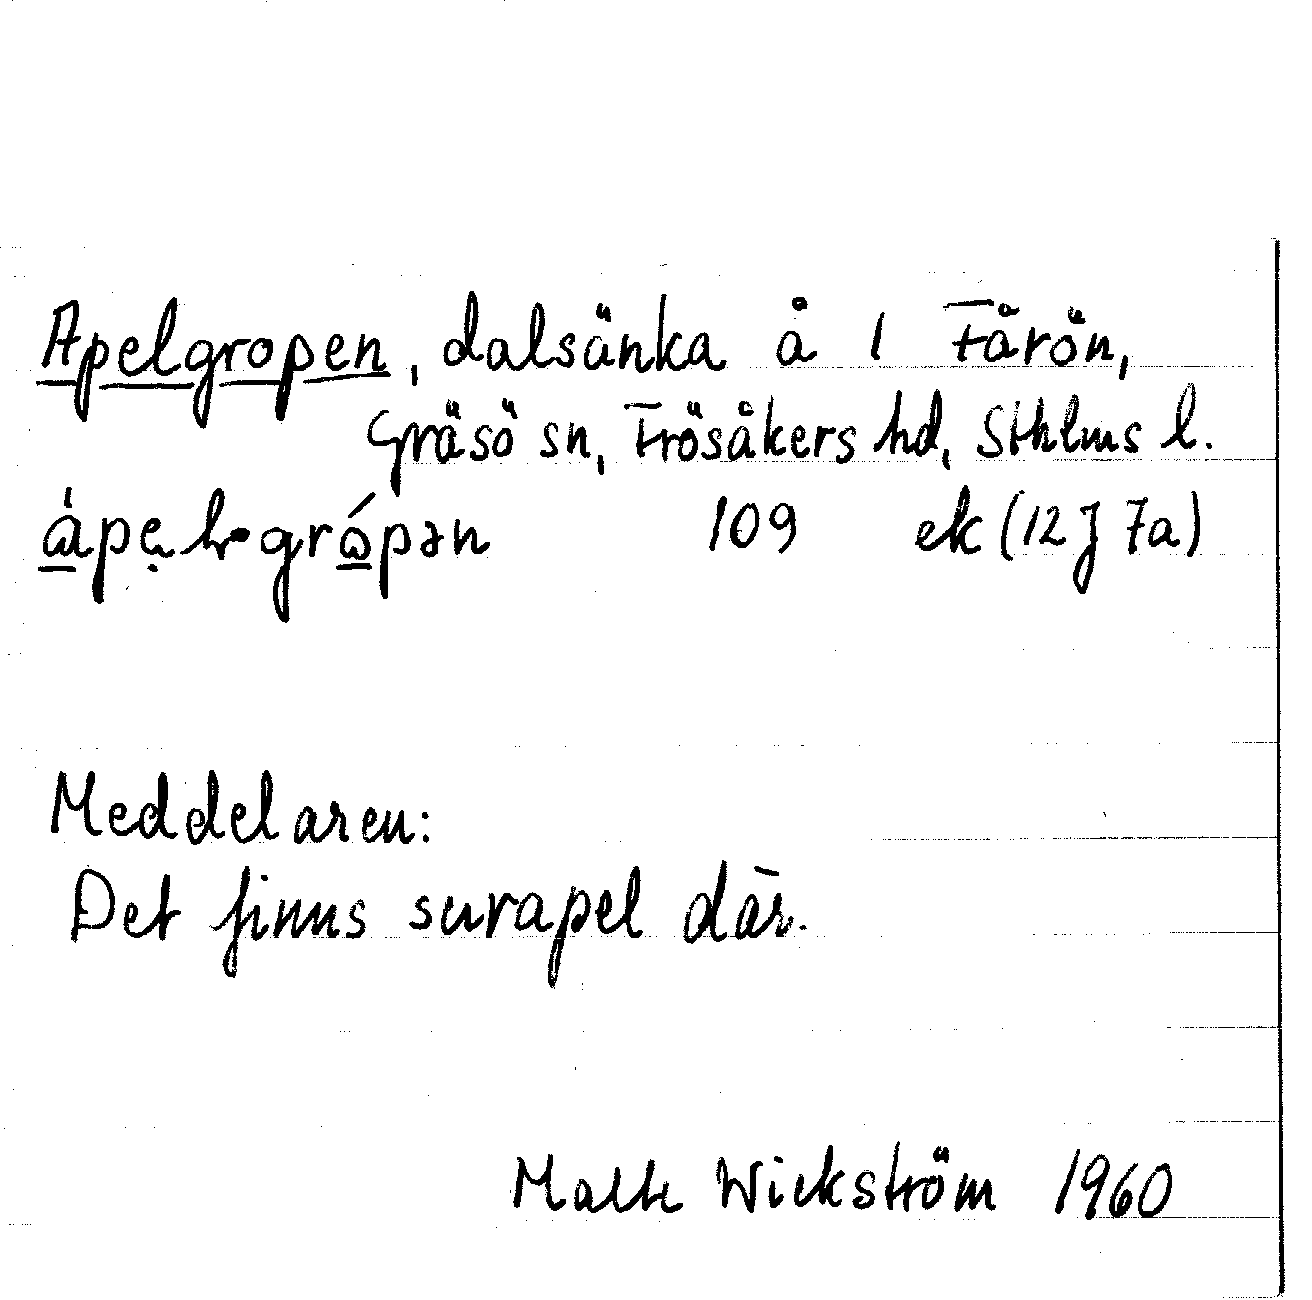 Apelgropen, dalsänka å 1 Fårön,
Gräsö sn, Frösåkers hd, Sthlms l.
109 ek (12J 7a)
Meddelaren:
Det finns surapel där.
Malte Wickström 1960